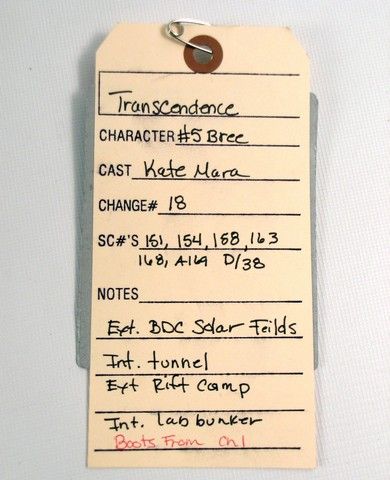 Transcendence
CHARACTER #5 Bree
CAST Kate Mara
CHANGE# 18
SC#'S 151, 154, 158, 163
168, A169 D/38
NOTES
Ext. BDC Solar Feilds
Int. tunnel
Ext Rift Camp
Int. lab bunker
Boots From Ch1